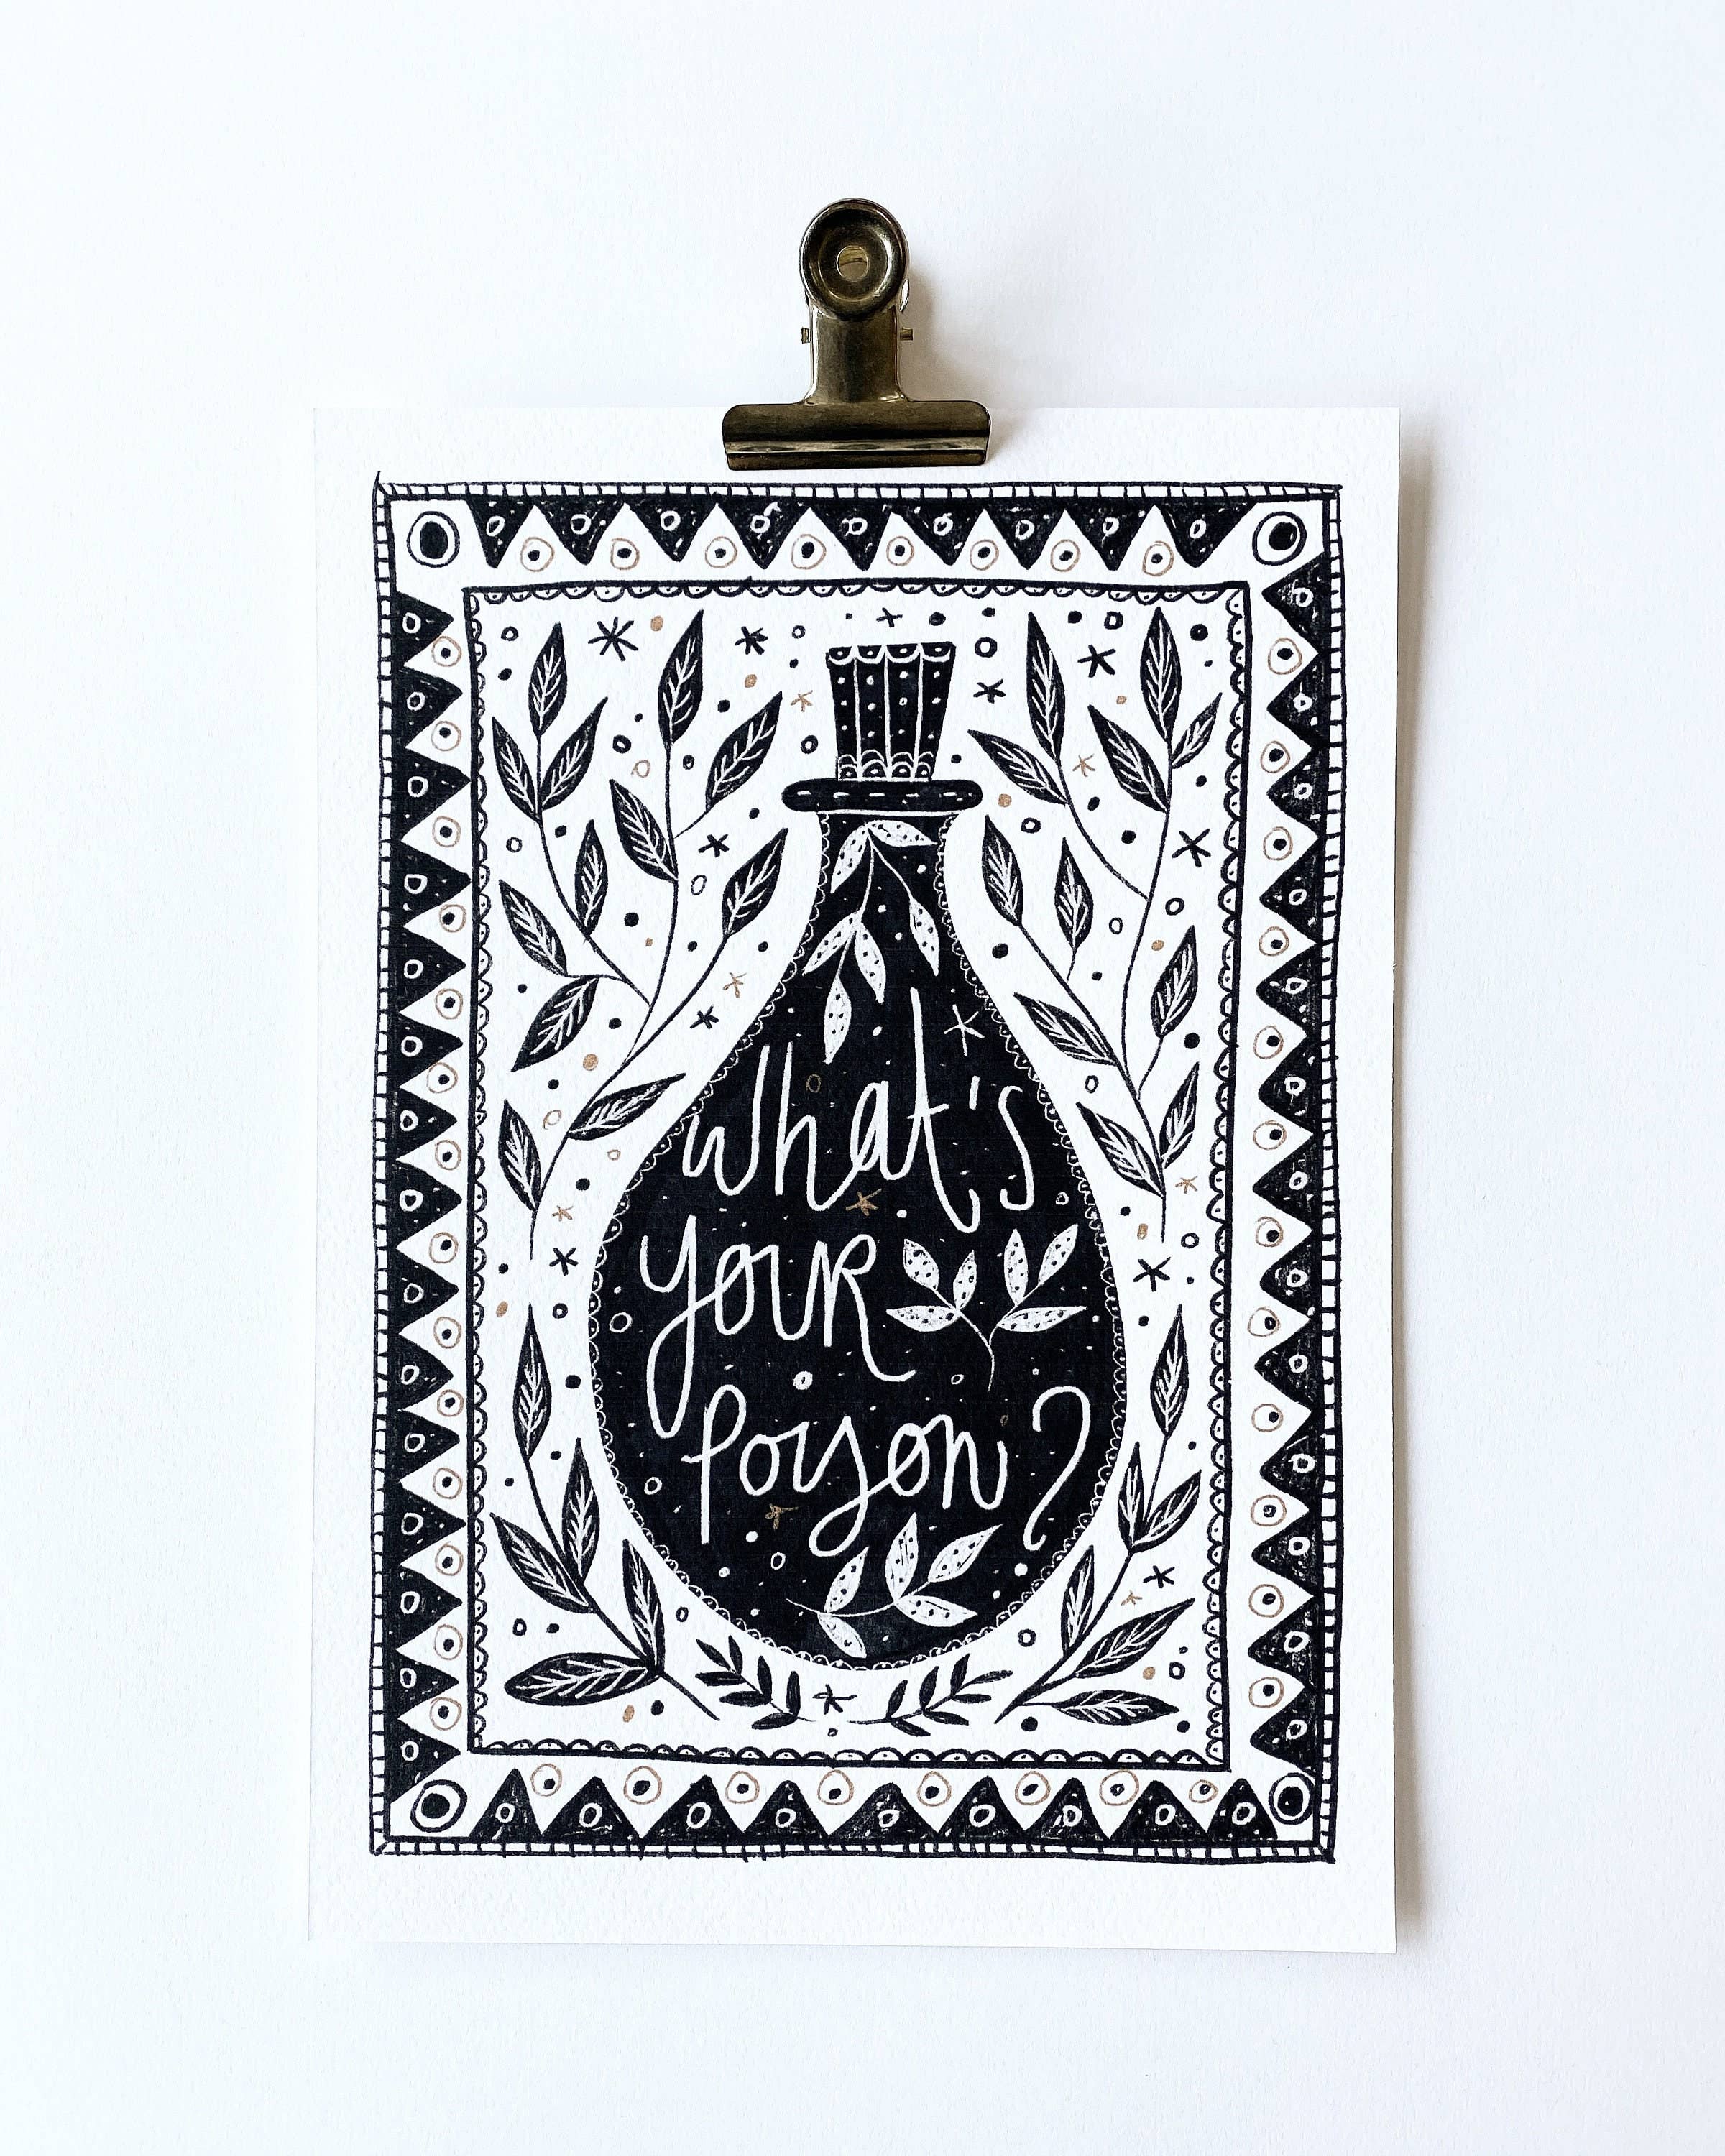 What's
your
Poison?